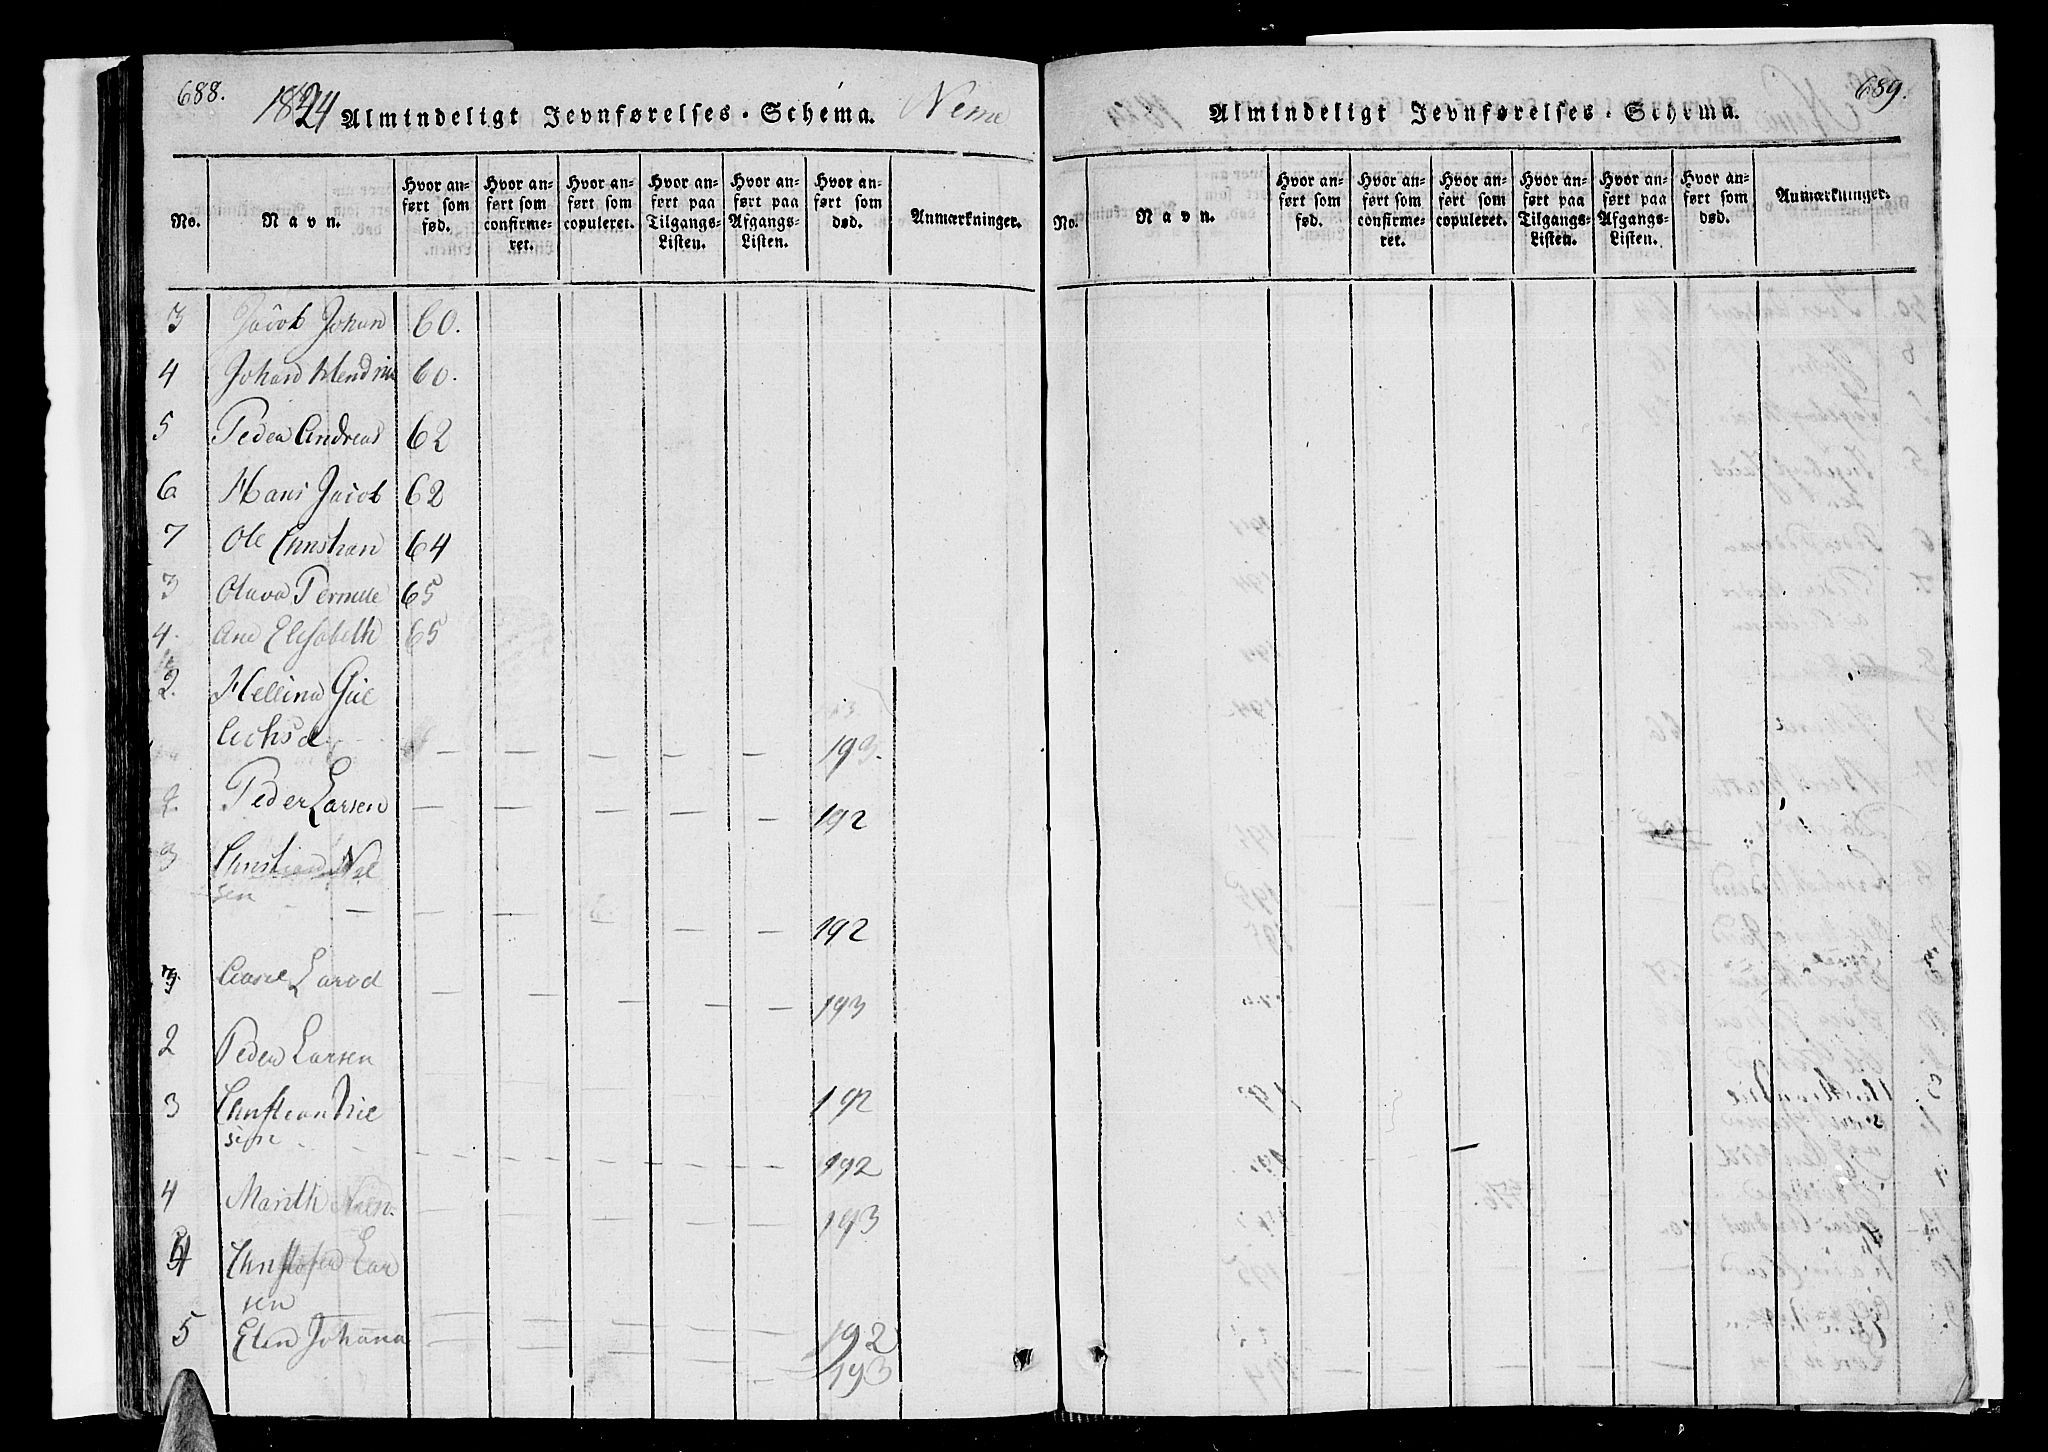 688.
1824 Almindeligt Jevnførelses-Schema.
No.
Navn.
Hvor anført som fød.
Hvor anført som confirmeret.
Hvor anført som copuleret.
Hvor anført paa Tilgangs-Listen.
Hvor anført paa Afgangs-Listen.
Hvor anført som død.
Anmærkninger.
3 Jacob Johan 60.
4 Johan Hendrik 60.
5 Peder Andreas 62
6 Hans Jacob 62
7 Ole Christian 64
3 Olava Pernelle 65
4. Ane Elisabeth 65
2. Hellina
— — — — — 193.
2. Peder Larsen — — — — — 192
3 Christian Niel
sen — — — — — 192
3. Larsd — — — — — 193
2 Peder Larsen
192
3 Christian Niel
sen — — — — — 192
4 Marith
193
4 Christofer Lar
sen
192
5 Elen Johanna
193
689.
Almindeligt Jevnførelses-Schema.
No.
Navn.
Hvor anført som fød.
Hvor anført som confirmeret.
Hvor anført som copuleret.
Hvor anført paa Tilgangs-Listen.
Hvor anført paa Afgangs-Listen.
Hvor anført som død.
Anmærkninger.